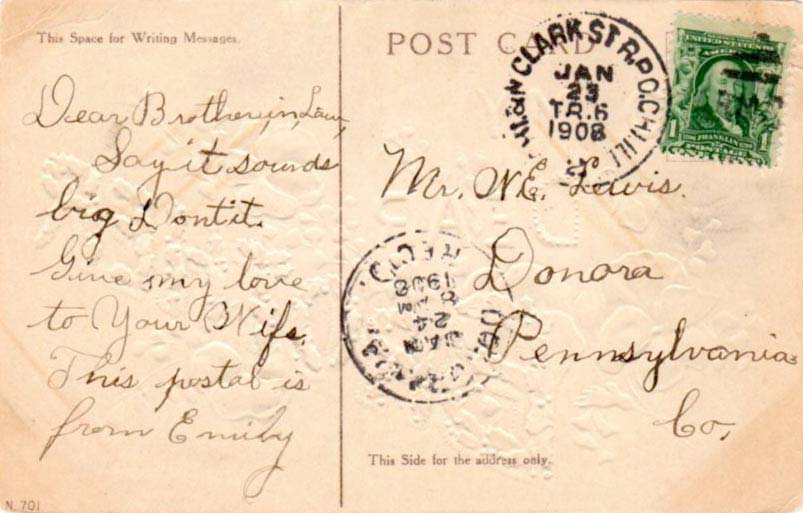 This Space for Writing Messages.
POST CARD
CLARK ST R.P.O. CHI. ILL
JAN
23
TR.5
1908
UNITED STATES OF
AMERICA
1 FRANKLIN 1
POSTAGE
Dear Brother, in, Law,
Say it sounds
big Dontit.
Give my love
to Your Wife.
This postal is
from Emily
Mr. W.E. Lewis.
Donora
Pennsylvania
Co.
REC'D.
1908
8 AM
24
JAN
DONORA, PA.
This Side for the address only.
N. 701